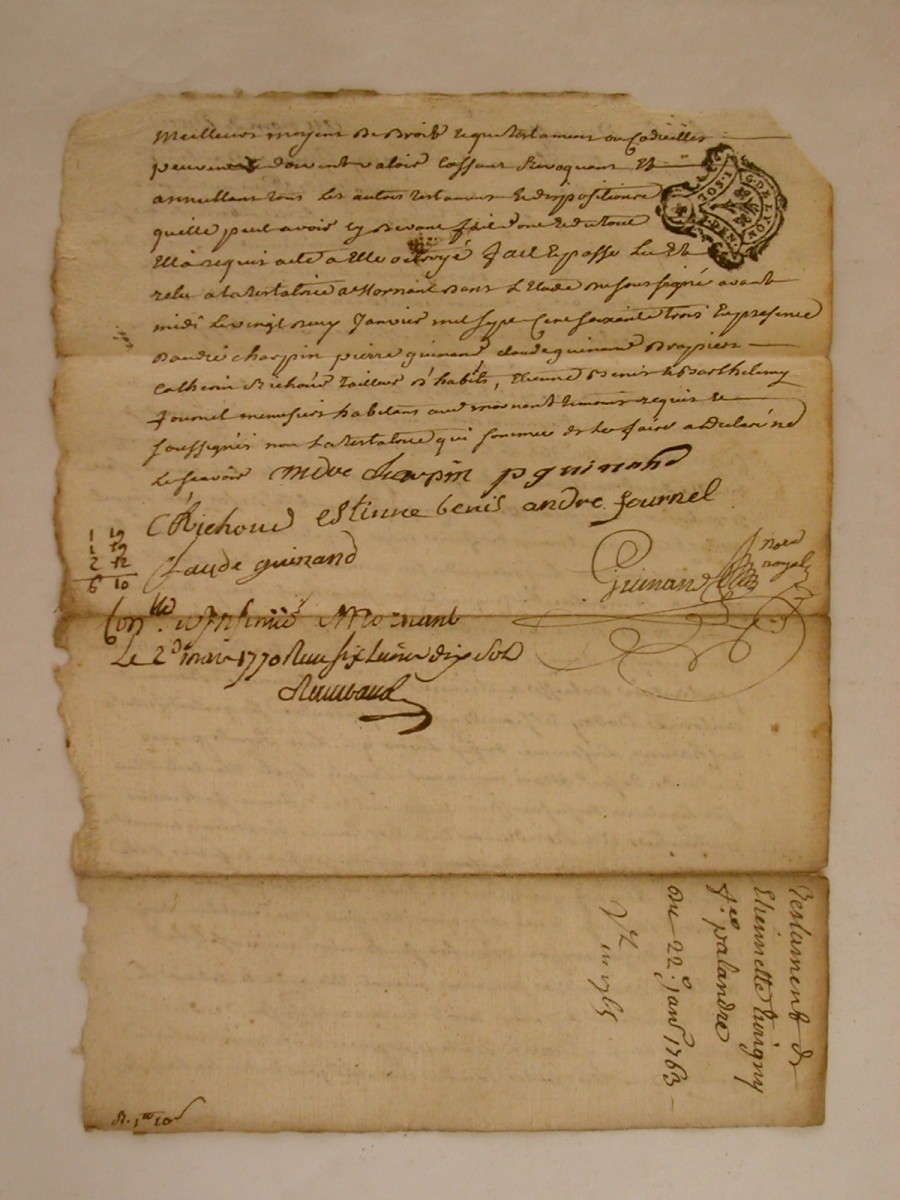 meilleurs moyens de droits que testament ou codicilles
peuvent doivent valoir cassant revoquant et
annullant tous les autres testaments et dispositions
quelle peut avoir cy devant fait donc de tout
Ella requis acte a Elle octroyé fait et passé Lu et
relu a la testatrice a Mornant dans l'Etude du soussigné avant
midi le vingt deux Janvier mil sept cent soixante trois En presence
d'andré charpin pierre guinand claude guinand drapiers
Catherin Richoud tailleur d'habits, Etienne benis & Barthelemy
fournel menusiers habitans audit mornant temoins requis et
soussignés non la testatrice qui sommée de le faire a declaré ne
le scavoir andre charpin pguinand
CRichoud estienne benis andre fournel
Claude guinand
Guinand
nore
royal
1 19
1 19
2 12
6 10
G. DE LYON
DEN
Con.lle a Mornant
Le 2e mai 1770 Reçu six livres dix sols
Testament de
Etiennette
palandre
du 22e janv 1763